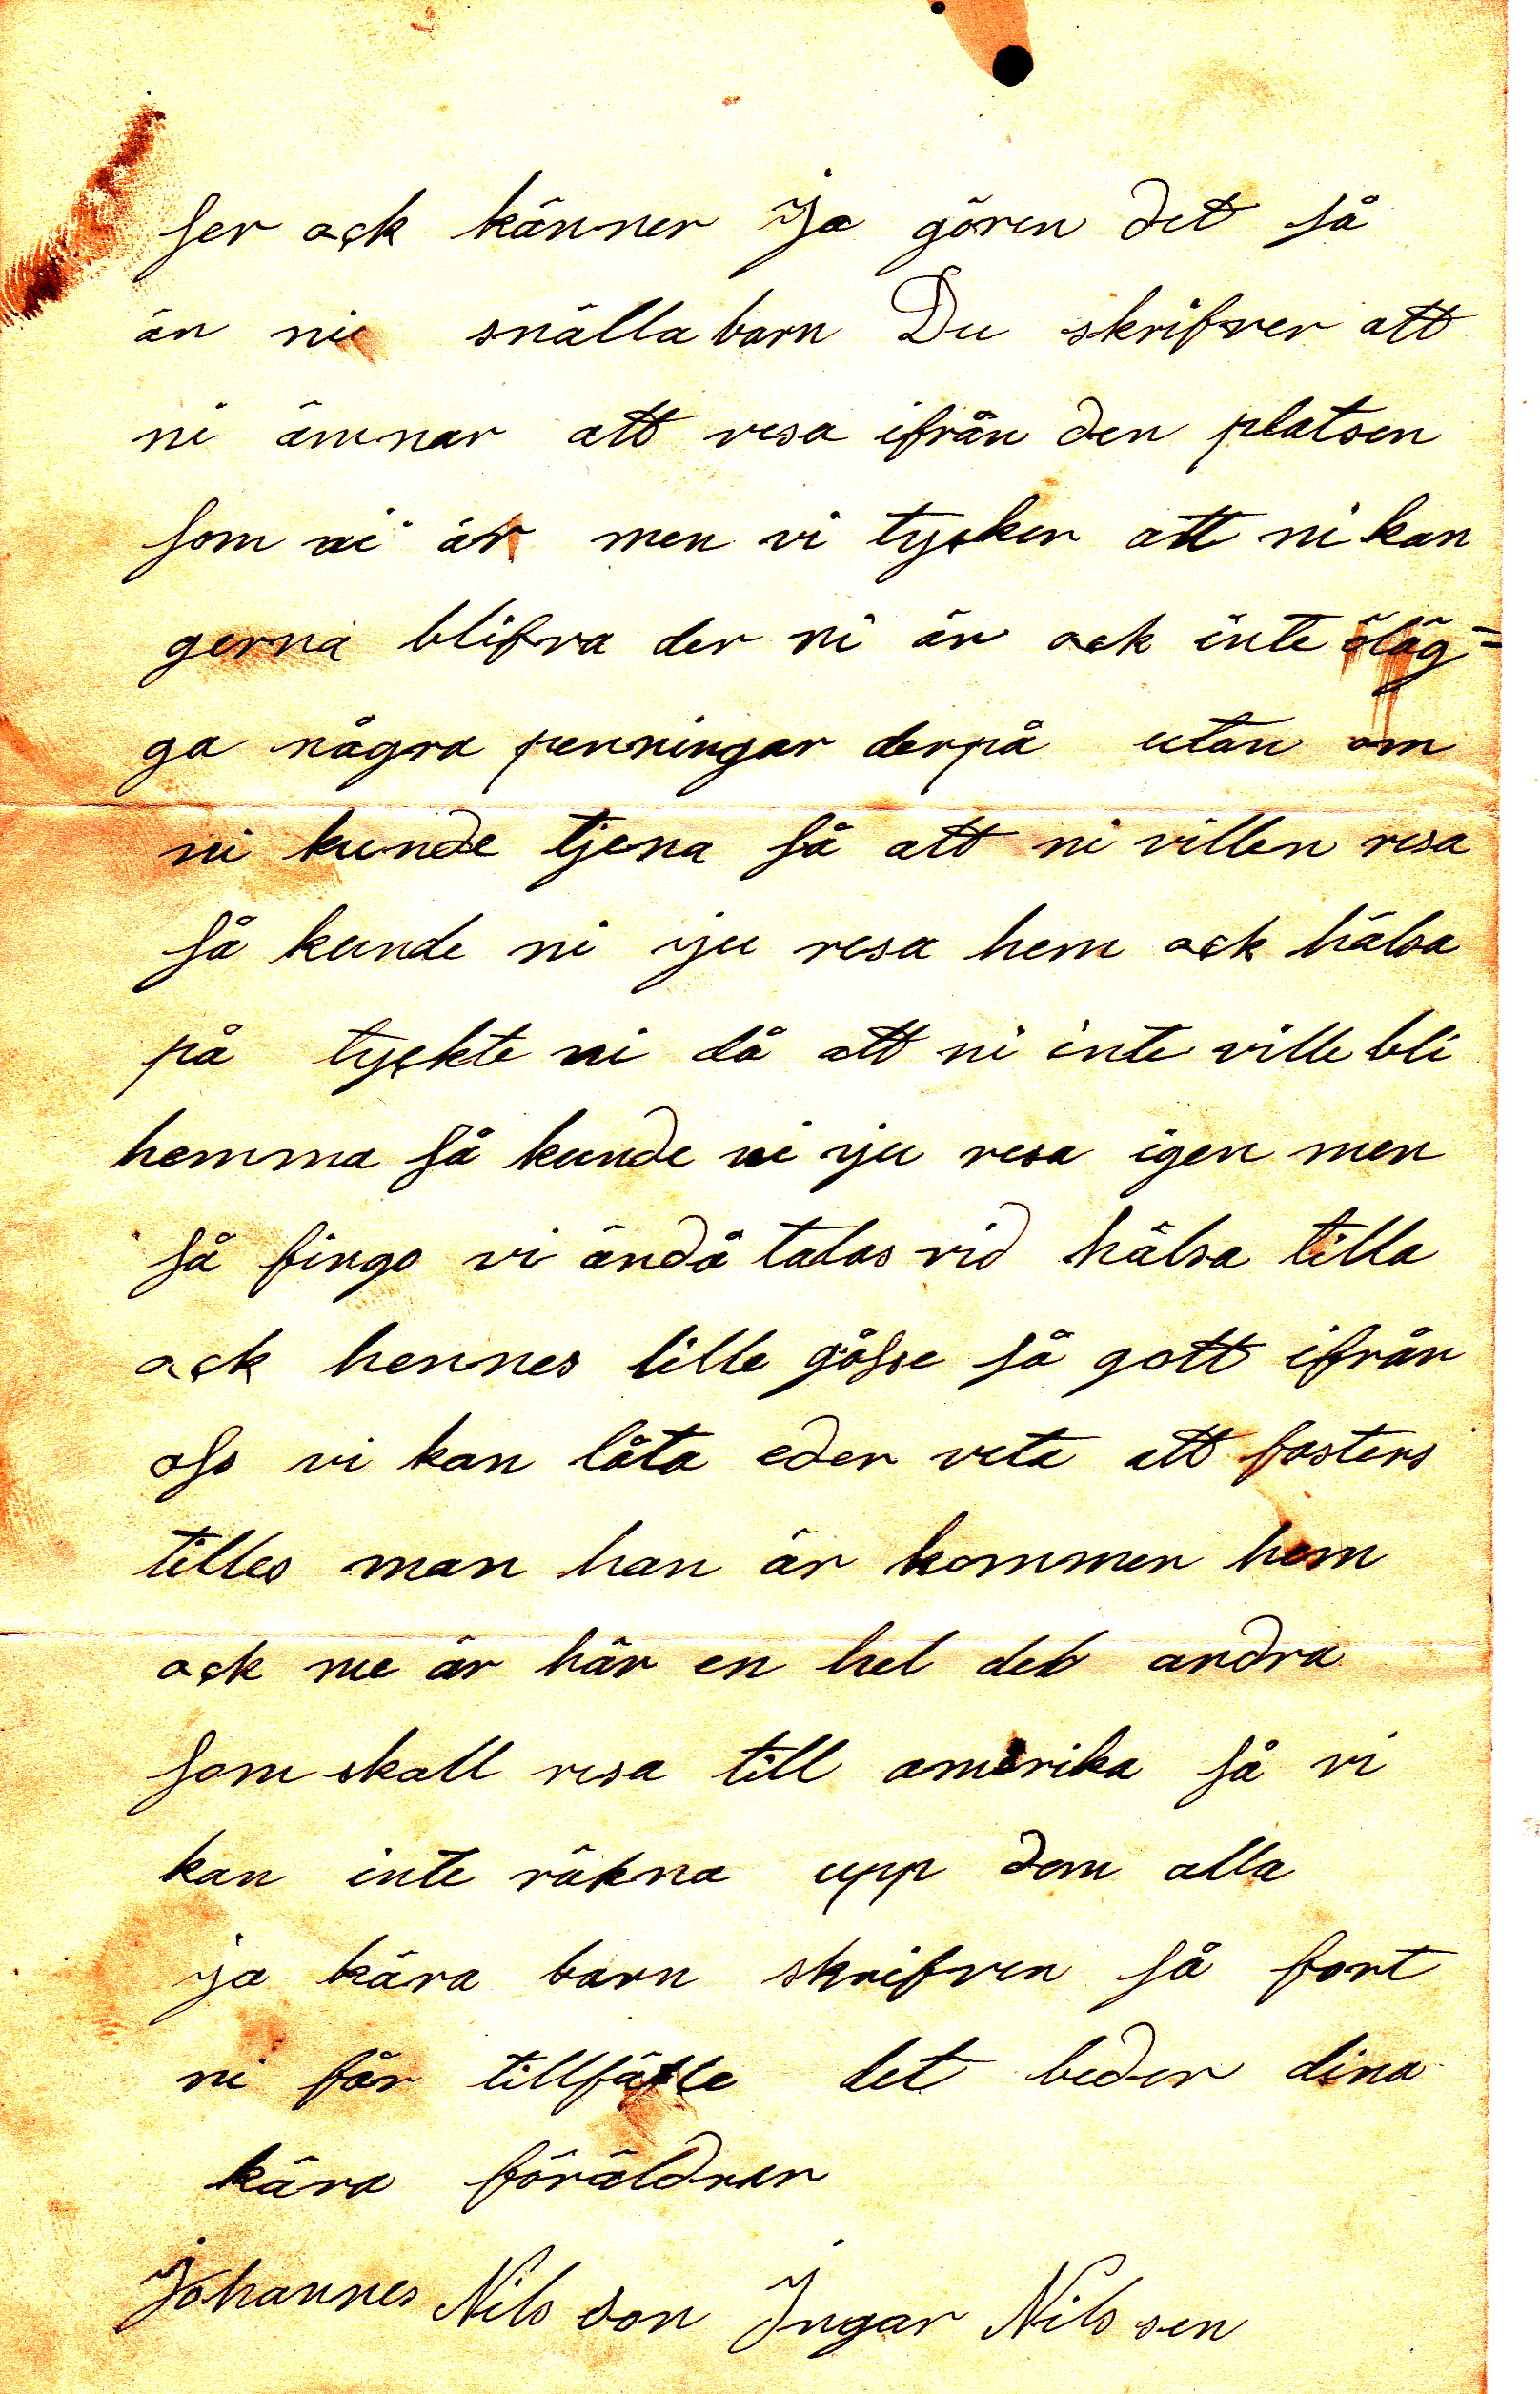 ser ock känner Ja gören det så
än nu snälla barn Du skrifver att
ni ämnar att resa ifrån den platsen
som ni är men vi tycker att ni kan
gerna blifva der ni är ock inte öläg=
ga några penningar derpå utan om
ni kunde tjena så att ni villen resa
så kunde ni ju resa hem ock hälsa
på tyckte ni då att ni inte ville bli
hemma så kunde ni ju resa igen men
så fingo vi ändå talas vid hälsa tilla
ock hennes lille gåsse så gott ifrån
oss vi kan låta eder veta att fosters
tilles man han är kommen hem
ock nu är här en hel del andra
som skall resa till amerika så vi
kan inte räkna upp dom alla
ja kära barn skrifven så fort
ni får tillfälle det beder dina
kära föräldrar
Johannes Nils son Ingar Nils sen